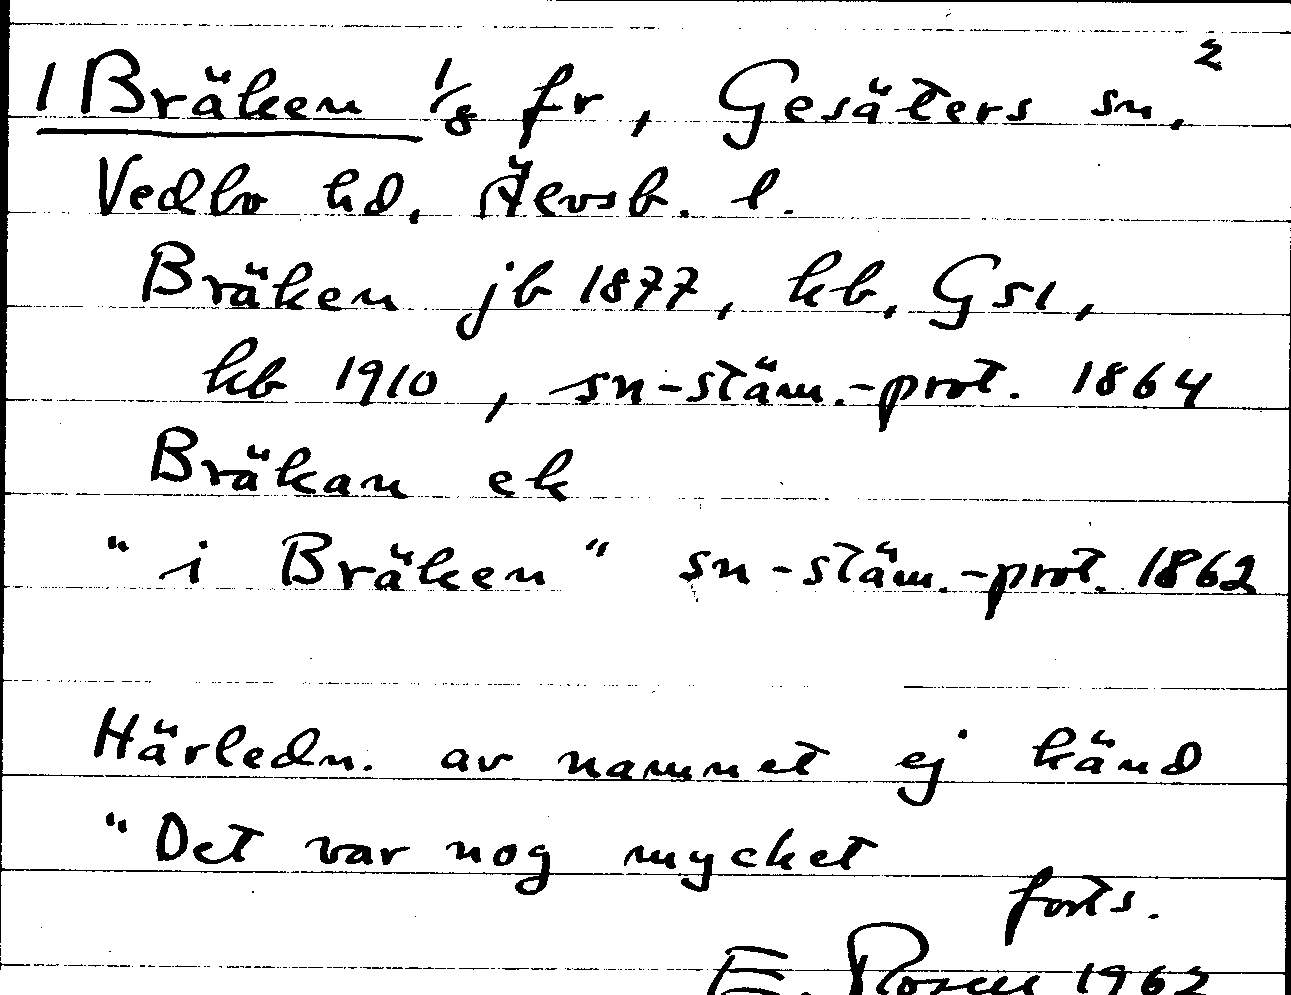 2
1 Bräken 1/8 fr, Gesäters sn,
Vedbo hd, Älvsb. l.
Bräken jb 1877, kb, Gs1,
kb 1910, sn-stäm.-prot. 1864
Bräkan ek
"i Bräken" sn-stäm.-prot. 1862
Härledn. av namnet ej känd
"Det var nog mycket
forts.
E. Rosell 1962